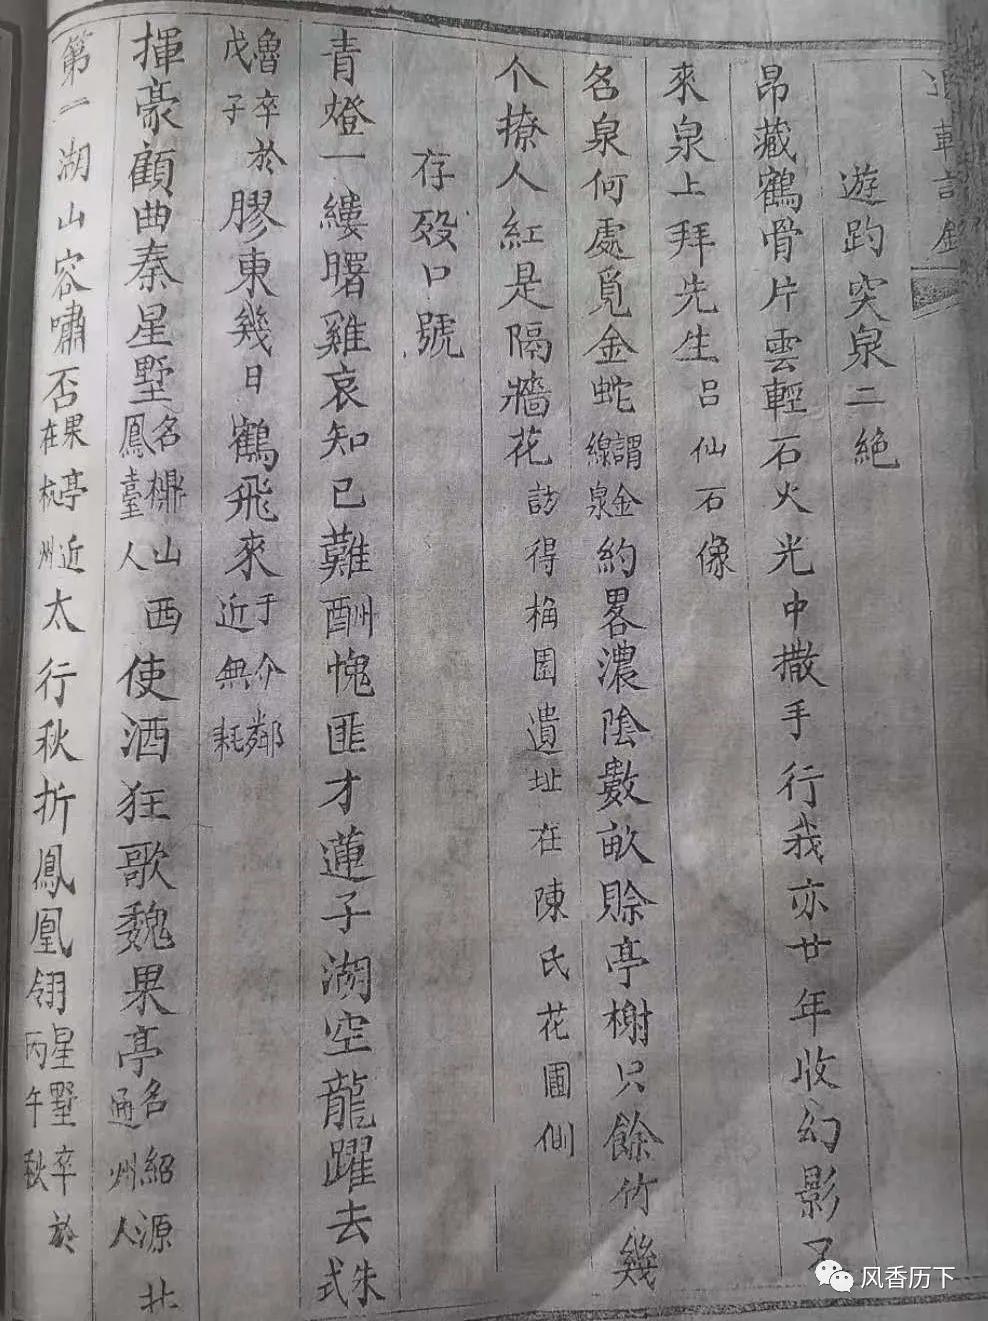 遊趵突泉二絶
昂藏鶴骨片雲輕石火光中撒手行我亦廿年收幻影又
來泉上拜先生呂仙石像
名泉何處覓金蛇謂金線泉約畧濃陰數畝賒亭榭只餘竹幾
个撩人紅是隔牆花訪得桷園遺址在陳氏花圃側
存歿口號
青燈一縷曙雞哀知已難酬愧匪才蓮子湖空龍躍去朱式
魯卒於戊子於膠東幾日鶴飛來于介鄰近無耗
揮豪顧曲秦星墅名櫆山西鳳臺人使酒狂歌魏果亭名紹源北通州人
第一湖山容嘯否果亭近在杭州太行秋折鳳凰翎星墅卒於丙午秋
风香历下